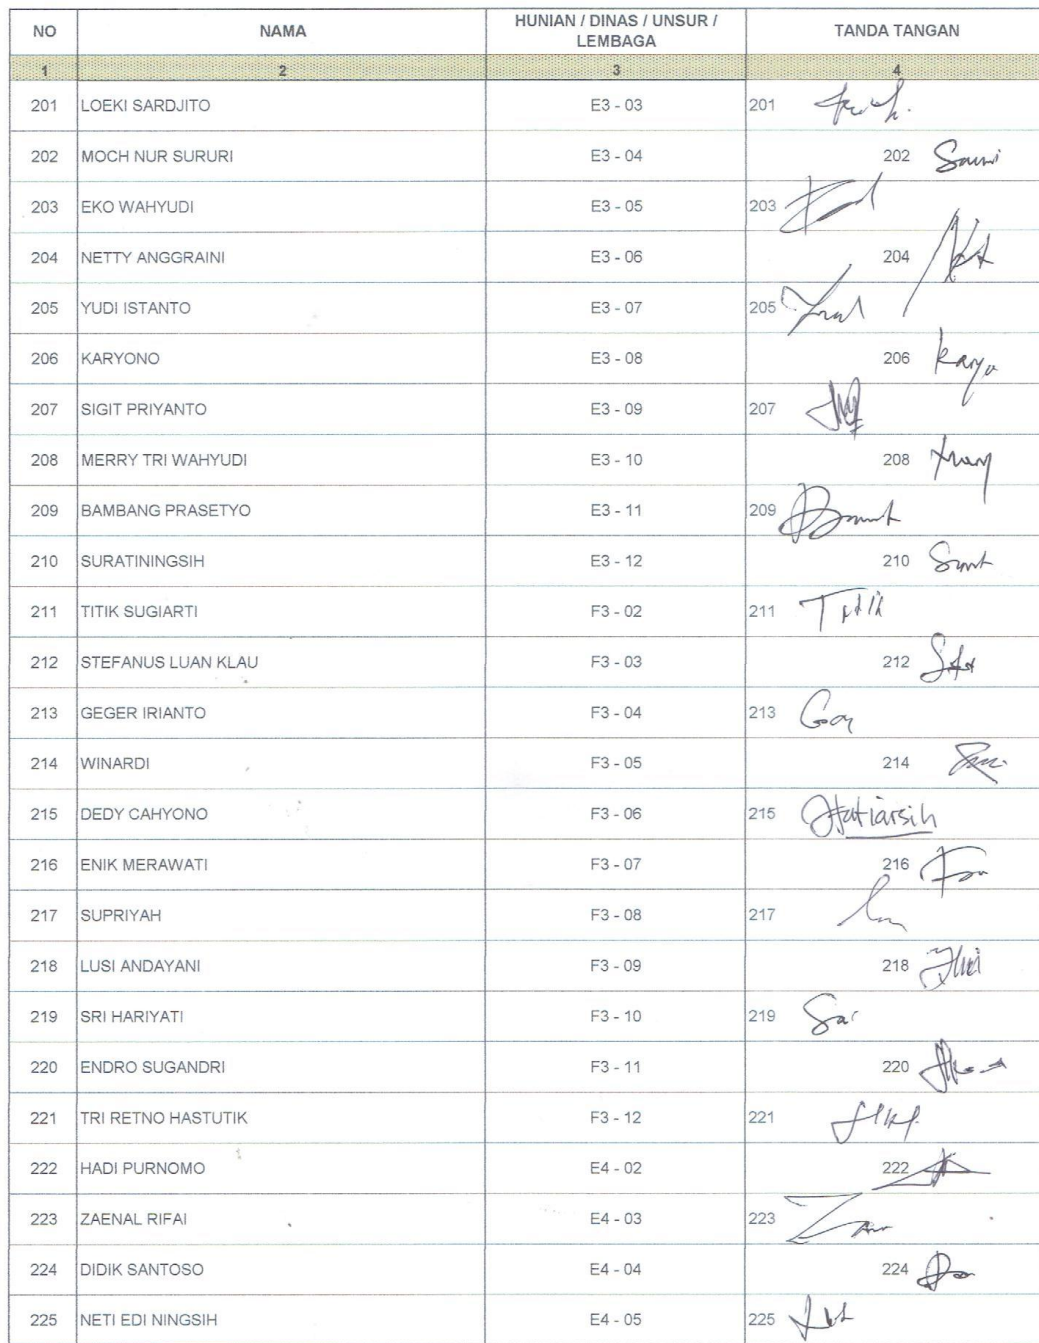 NO NAMA HUNIAN / DINAS / UNSUR / LEMBAGA TANDA TANGAN
1 2 3 4
201 LOEKI SARDJITO E3 - 03 201
202 MOCH NUR SURURI E3 - 04 202
203 EKO WAHYUDI E3 - 05 203
204 NETTY ANGGRAINI E3 - 06 204
205 YUDI ISTANTO E3 - 07 205
206 KARYONO E3 - 08 206
207 SIGIT PRIYANTO E3 - 09 207
208 MERRY TRI WAHYUDI E3 - 10 208
209 BAMBANG PRASETYO E3 - 11 209
210 SURATININGSIH E3 - 12 210
211 TITIK SUGIARTI F3 - 02 211
212 STEFANUS LUAN KLAU F3 - 03 212
213 GEGER IRIANTO F3 - 04 213
214 WINARDI F3 - 05 214
215 DEDY CAHYONO F3 - 06 215
216 ENIK MERAWATI F3 - 07 216
217 SUPRIYAH F3 - 08 217
218 LUSI ANDAYANI F3 - 09 218
219 SRI HARIYATI F3 - 10 219
220 ENDRO SUGANDRI F3 - 11 220
221 TRI RETNO HASTUTIK F3 - 12 221
222 HADI PURNOMO E4 - 02 222
223 ZAENAL RIFAI E4 - 03 223
224 DIDIK SANTOSO E4 - 04 224
225 NETI EDI NINGSIH E4 - 05 225